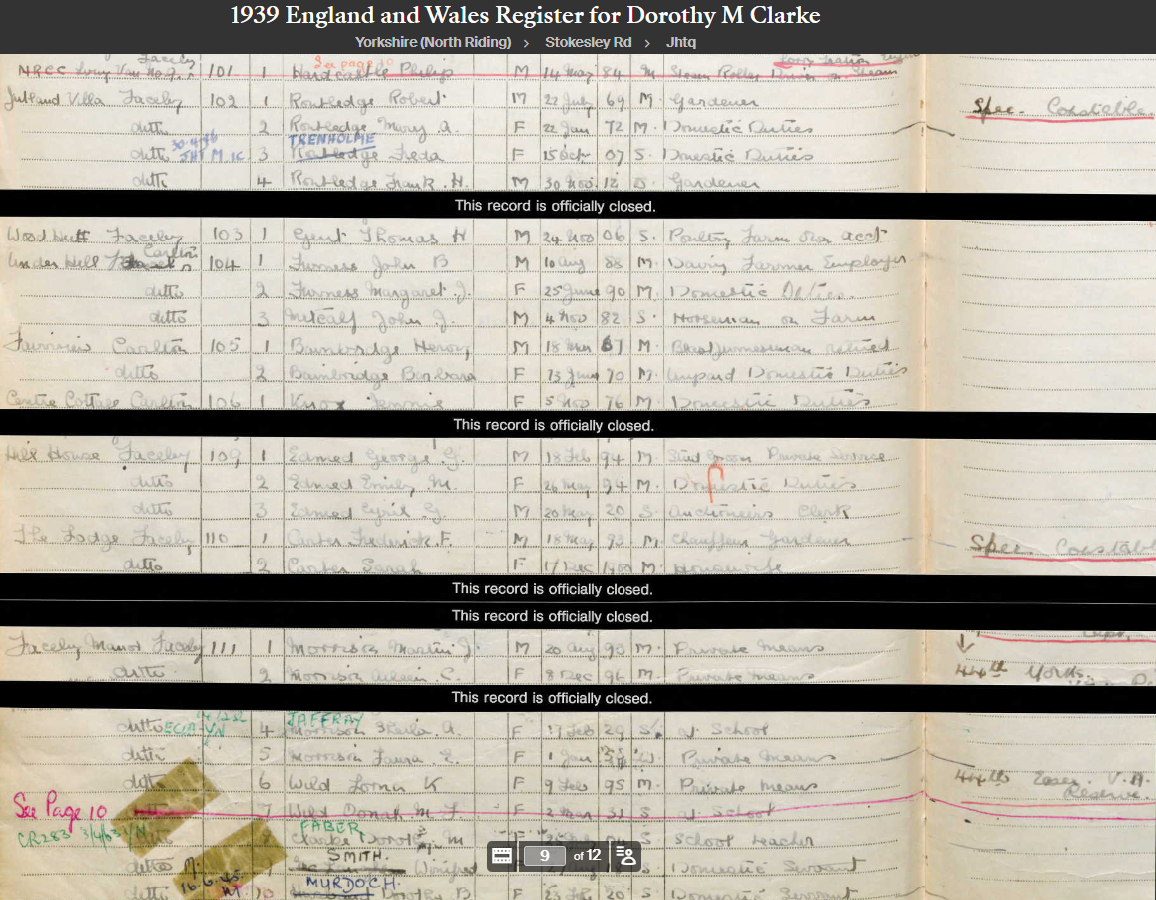 1939 England and Wales Register for Dorothy M Clarke
Yorkshire (North Riding) > Stokesley Rd > Jhtq
Faceby See page 10
NRCC Living Van No 7. 101 1 Hardcastle Philip M 14 May 84 M Steam Roller Driver Steam
Jutland Villa Faceby 102 1 Routledge Robert M 22 July 69 M. Gardener Spec. Constable.
ditto 2 Routledge Mary A. F 22 Jan 72 M. Domestic Duties
30-4-46 TRENHOLME
ditto M.1C. 3 Routledge Freda F 15 Oct 07 S. Domestic Duties
ditto 4 Routledge Frank. H. M 30 Nov. 12 S. Gardener
This record is officially closed.
Wood Hutt Faceby 103 1 Gent Thomas H M 24 Nov 06 S. Poultry Farm Own acct
Carlton
Under Hill 104 1 Furness John B M 10 Aug 88 M. Dairy Farmer Employer
ditto 2 Furness Margaret J. F 25 June 90 M. Domestic Duties.
ditto 3 Metcalf John J. M 4 Nov 82 S. Horseman on Farm
Fairview Carlton 105 1 Bainbridge Henry M 18 67 M. retired
ditto 2 Bainbridge Barbara F 13 June 70 M. Unpaid Domestic Duties
Centre Cottage Carlton 106 1 Knox Jennie F 5 Nov 76 M. Domestic Duties
This record is officially closed.
Hill House Faceby 109 1 Edmed George G. M 18 Feb 94 M. Stud Groom Private Service
ditto 2 Edmed Emily M. F 26 May 94 M. Domestic Duties
ditto 3 Edmed Cyril G. M 20 May 20 S. Auctioneers Clerk
The Lodge Faceby 110 1 Carter Frederick F. M 18 May 93 M. Chauffeur Gardener Spec. Constabl
ditto 2 Carter Sarah F 17 Dec 1900 M. Housewife
This record is officially closed.
This record is officially closed.
Faceby Manor Faceby 111 1 Morrison Martin J. M 20 Aug 93 M. Private means
ditto 2 Morrison Aileen C. F 8 Dec 96 M. Private means 44th Yorks
This record is officially closed.
JAFFRAY
ditto ECIA VN 4 Morrison Sheila. A. F 17 Feb 29 S. at School
ditto 5 Morrison Laura. E. F 1 Jan W. Private Means
ditto 6 Wild Lorna K F 9 Feb 95 M. Private means 44th Essex. V.A.
Reserve.
See Page 10
ditto 7 Wild Donah M F. F 2 Mar 31 S at School
CR283 3/4/63 YN FABER
ditto Clarke Dorothy M F S School teacher
SMITH.
ditto Winifred Domestic Servant
16.6.45. MURDOCH.
ditto 10 Dorothy B F 23 Feb 20 S. Domestic Servant
9 of 12